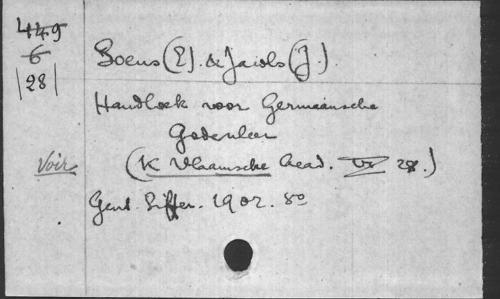 449
6
|28|
Soens (E). & Jacobs (J.)
Handboek voor Germaansche
Godenleer
Voir (K Vlaamsche Acad. VI 28.)
Gent. Siffer. 1902. 8o